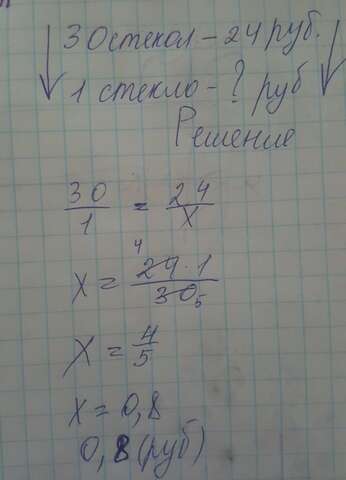 30 стекол - 24 руб.
1 стекло - ? руб
Решение
30/1 = 24/x
x = 24·1/30
4 5
x = 4/5
x = 0,8
0,8 (руб)